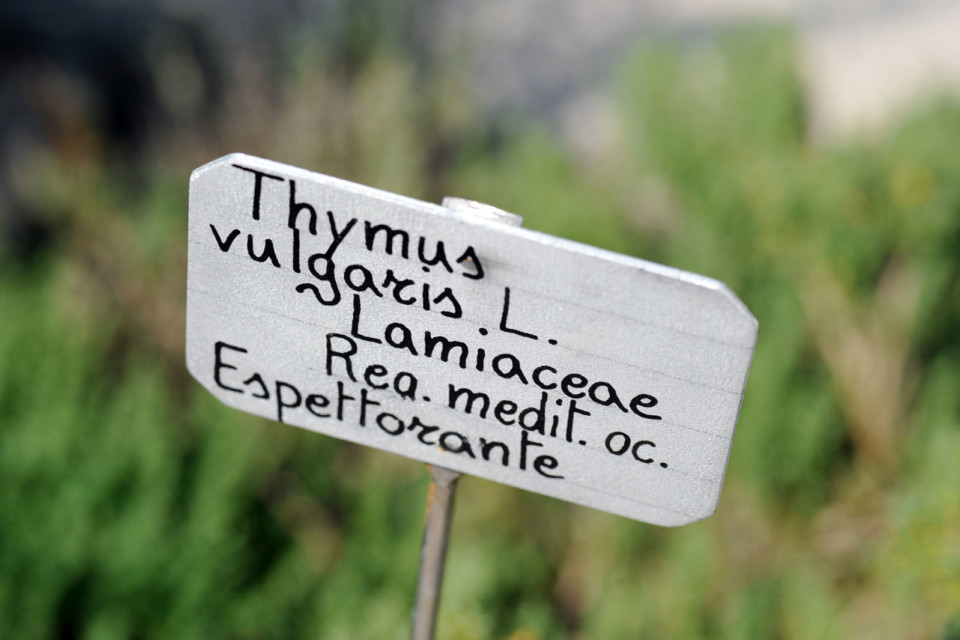 Thymus
vulgaris.L.
Lamiaceae
Rea. medit. oc.
Espettorante